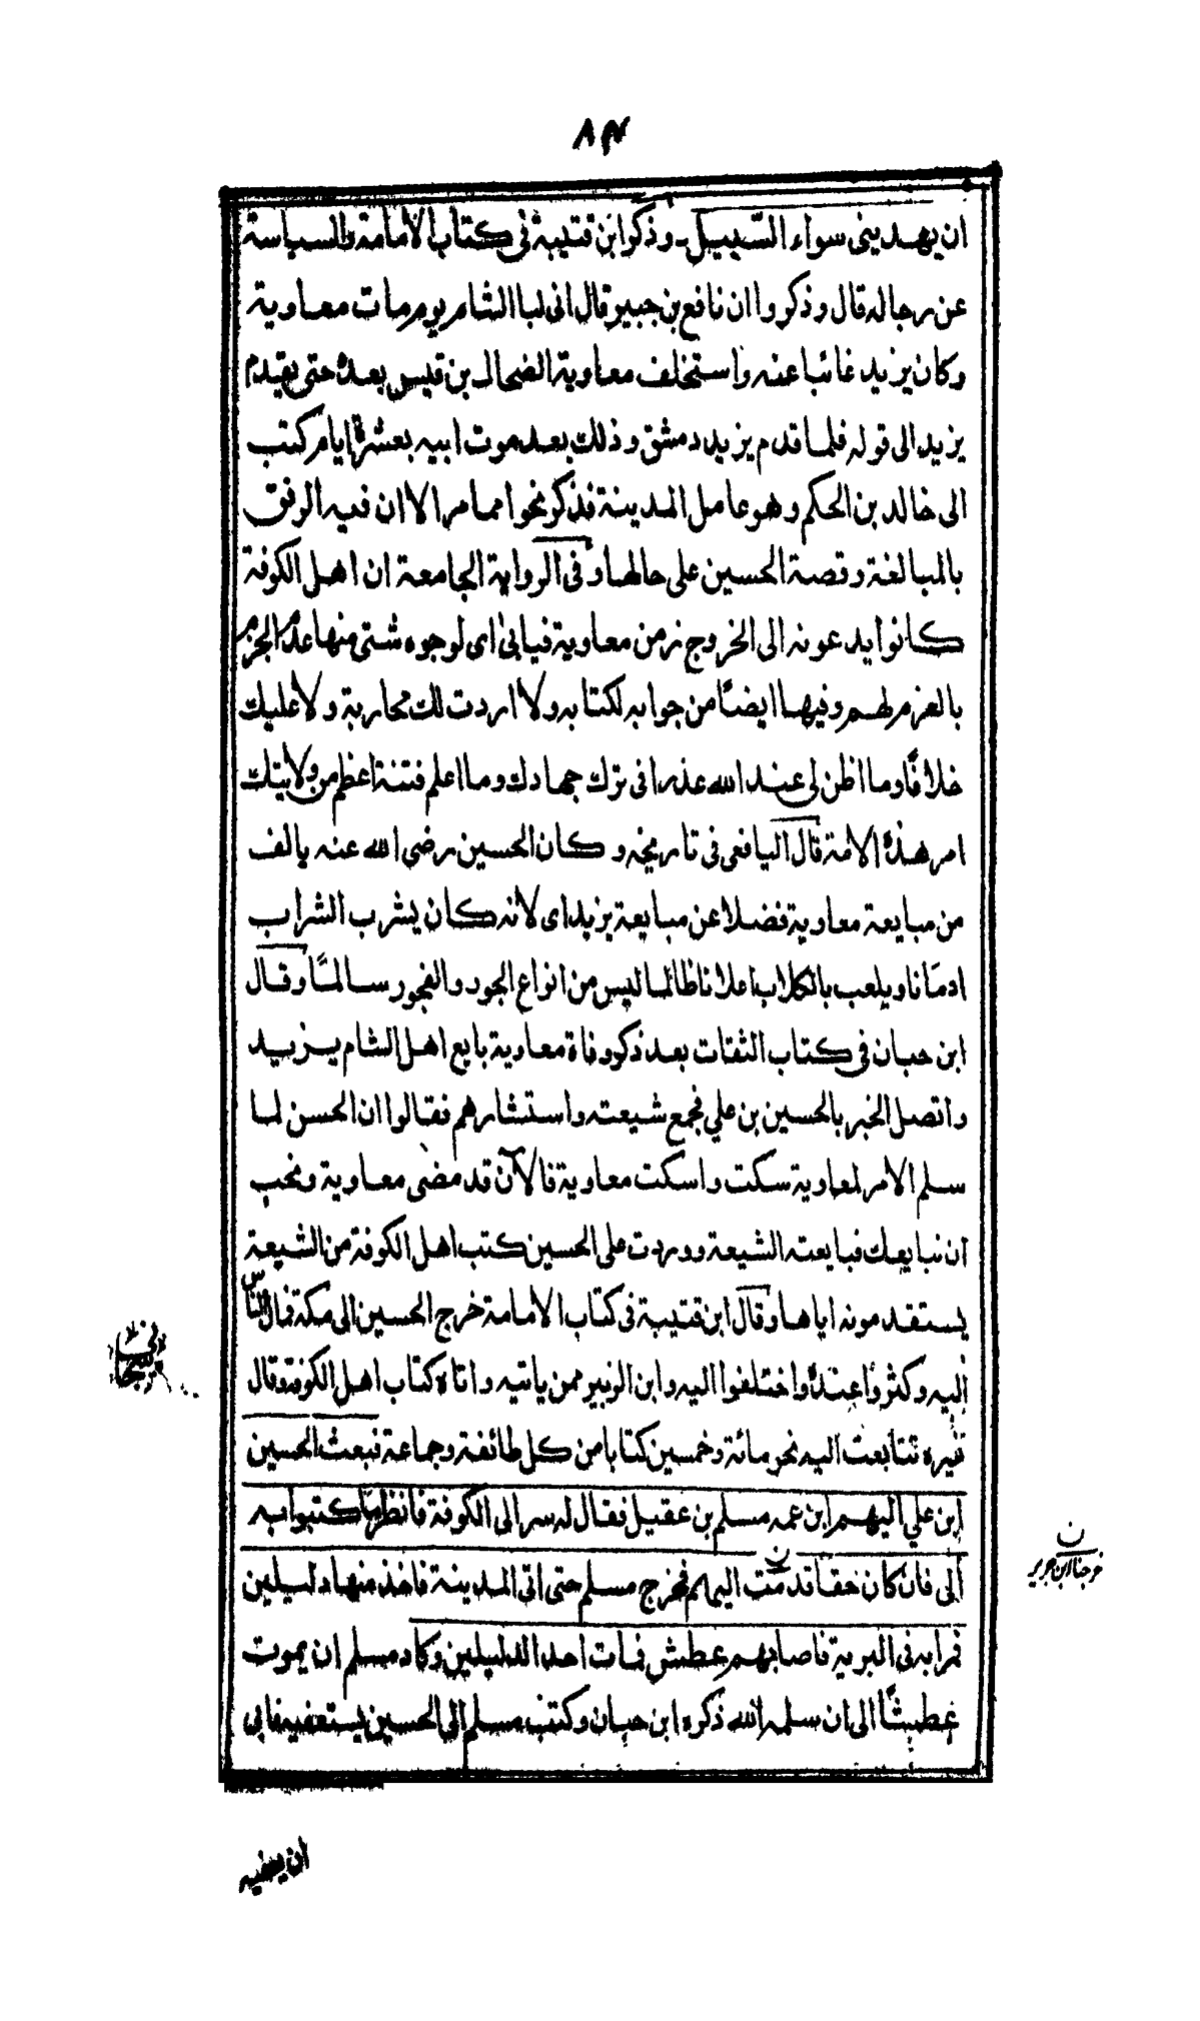 ٨٤
ان يهديني سواء السبيل ـ وذكر ابن قتيبة في كتاب الامامة والسياسة
عن رجاله قال وذكروا ان نافع بن جبير قال اني لبا الشام يوم مات معاوية
وكان يزيد غائبا عنه واستخلف معاوية الضحاك بن قيس بعده حتى يقدم
يزيد الى قوله فلما قدم يزيد دمشق وذلك بعد موت ابيه بعشرة ايام كتب
الى خالد بن الحكم وهو عامل المدينة فذكر نحوا مما مر الا ان فيه الرفق
بالمبالغة وقصة الحسين على حالها وفي الرواية الجامعة ان اهل الكوفة
كانوا يدعونه الى الخروج زمن معاوية فيابى اى لوجوه شتى منها عدم الجزم
بالعزم لهم وفيها ايضًا من جوابه لكتابه ولا اردت لك محاربة ولا عليك
خلافًا وما اظن لى عند الله عذرا فى ترك جهادك وما اعلم فتنة اعظم من ولايتك
امر هذه الامة قال اليافعى فى تاريخه وكان الحسين رضى الله عنه يالف
من مبايعة معاوية فضلا عن مبايعة يزيد اى لانه كان يشرب الشراب
ادمانا ويلعب بالكلاب اعلانا ظالما ليس من انواع الجور والفجور سالمًا وقال
ابن حبان فى كتاب الثقات بعد ذكر وفاة معاوية بايع اهل الشام يزيد
واتصل الخبر بالحسين بن علي فجمع شيعته واستشارهم فقالوا ان الحسن لما
سلم الامر لمعاوية سكت واسكت معاوية فالآن قد مضى معاوية ونحب
ان نبايعك فبايعته الشيعة ووردت على الحسين كتب اهل الكوفة من الشيعة
يستقدمونه اياها وقال ابن قتيبة فى كتاب الامامة خرج الحسين الى مكة فمال الناس
اليه وكثروا عنده واختلفوا اليه وابن الزبير ممن ياتيه واتاه كتاب اهل الكوفة وقال
غيره تتابعت اليه نحو مائة وخمسين كتابا من كل طائفة وجماعة فبعث الحسين
ابن علي اليهم ابن عمه مسلم بن عقيل فقال له سر الى الكوفة فانظر ما كتبوا به
الى فان كان حقا قدمت اليهم فخرج مسلم حتى اتى المدينة فاخذ منها دليلين
فمرا به فى البرية فاصابهم عطش فمات احد الدليلين وكاد مسلم ان يموت
عطشًا الى ان سلمه الله ذكره ابن حبان وكتب مسلم الى الحسين يستعفيه فابى
ن
خرجنا ابن جرير
ان يعفيه